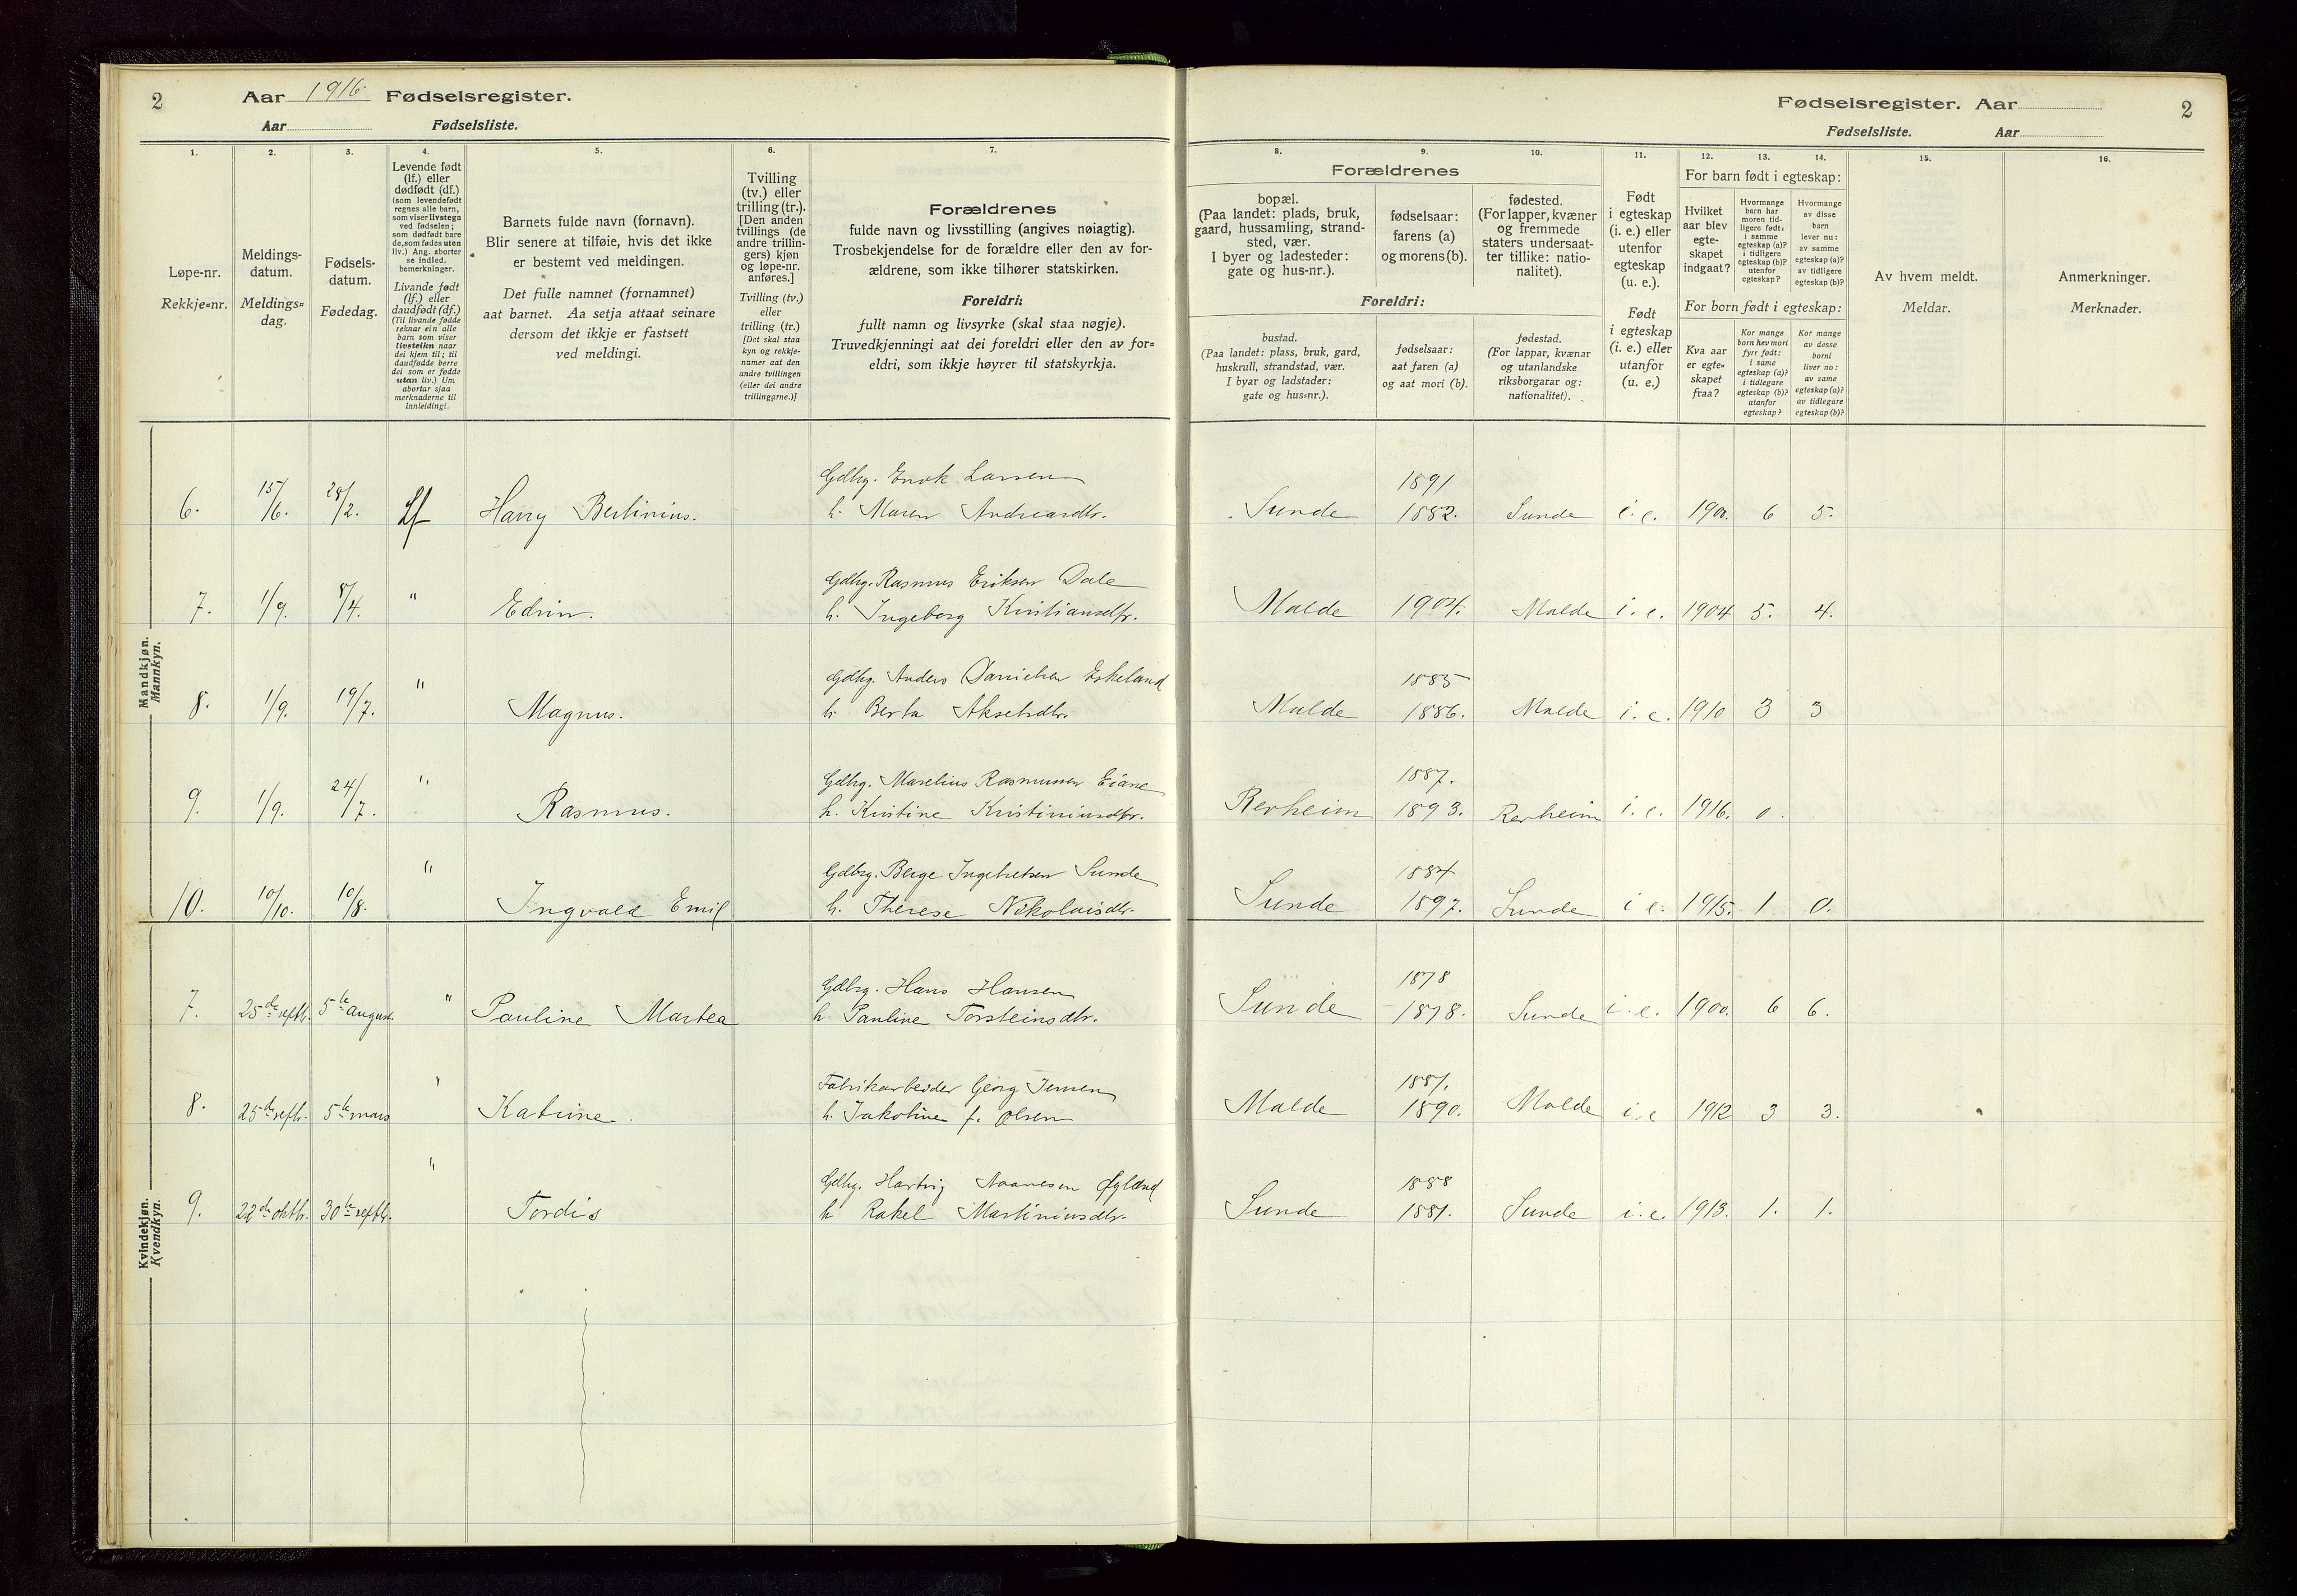 2
Aar 1916. Fødselsregister.
Aar Fødselsliste.
1.
2.
3.
4.
5.
6.
7.
Løpe-nr.
Rekkje=nr.
Meldings-
datum.
Meldings=
dag.
Fødsels-
datum.
Fødedag.
Levende født
(lf.) eller
dødfødt (df.)
(som levendefødt
regnes alle barn,
som viser livstegn
ved fødselen;
som dødfødt bare
de, som fødes uten
liv.) Ang. aborter
se indled.
bemerkninger.
Livande født
(lf.) eller
daudfødt (df.)
(Til livande fødde
reknar ein alle
barn som viser
livsteikn naar
dei kjem til; til
daudfødde berre
dei som er fødde
utan liv.) Um
abortar sjaa
merknaderne til
innleidingi.
Barnets fulde navn (fornavn).
Blir senere at tilføie, hvis det ikke
er bestemt ved meldingen.
Det fulle namnet (fornamnet)
aat barnet. Aa setja attaat seinare
dersom det ikkje er fastsett
ved meldingi.
Tvilling
(tv.) eller
trilling (tr.).
[Den anden
tvillings (de
andre trillin-
gers) kjøn
og løpe-nr.
anføres.]
Tvilling (tv.)
eller
trilling (tr.)
[Det skal staa
kyn og rekkje-
numer aat den
andre tvillingen
(eller dei andre
trillingarne.)]
Forældrenes
fulde navn og livsstilling (angives nøiagtig).
Trosbekjendelse for de forældre eller den av for-
ældrene, som ikke tilhører statskirken.
Foreldri:
fullt namn og livsyrke (skal staa nøgje).
Truvedkjenningi aat dei foreldri eller den av for=
eldri, som ikkje høyrer til statskyrkja.
Mandkjøn.
Mannkyn.
6. 15/6. 28/2. Lf Harry Berlinius. Gdbg. Enok Larsen
h. Maren Andreasdtr.
7. 1/9. 8/4. " Edvin. Gdbg. Rasmus Eriksen Dale
h. Ingeborg Kristiansdtr.
8. 1/9. 19/7. " Magnus. Gdbg. Anders Danielsen Eskeland
h. Berta Akselsdtr.
9. 1/9. 24/7. " Rasmus. Gdbg. Marelius Rasmussen Eiane
h. Kristine Kristiniusdtr.
10. 10/10. 10/8. " Ingvald Emil Gdbg. Berge Ingebretsen Sunde
h. Therese Nikolaisdtr.
Kvindekjøn.
Kvendkyn.
7. 25de septb. 5te august. " Pauline Martea Gdbg. Hans Hansen
h. Pauline Torsteinsdtr.
8. 25de septbr. 5te mars " Katrine. Fabrikarbeider Georg Jensen
h. Jakobine f. Olsen
9. 22de oktbr. 30te septbr. " Tordis Gdbg. Hartvig Aanesen Øglænd
h. Rakel Martiniusdtr.
Fødselsregister. Aar
2
Fødselsliste. Aar
8.
9.
10.
11.
12.
13.
14.
15.
16.
Forældrenes
bopæl.
(Paa landet: plads, bruk,
gaard, hussamling, strand-
sted, vær.
I byer og ladesteder:
gate og hus-nr.).
fødselsaar:
farens (a)
og morens (b).
fødested.
(For lapper, kvæner
og fremmede
staters undersaat-
ter tillike: natio-
nalitet).
Foreldri:
bustad.
(Paa landet: plass, bruk, gard,
huskrull, strandstad, vær.
I byar og ladstader:
gate og hus=nr.).
fødselsaar:
aat faren (a)
og aat mori (b).
fødestad.
(For lappar, kvænar
og utanlandske
riksborgarar og:
nationalitet).
Født
i egteskap
(i. e.) eller
utenfor
egteskap
(u. e.).
Født
i egteskap
(i. e.) eller
utanfor
(u. e.)
For barn født i egteskap:
Hvilket
aar blev
egte-
skapet
indgaat?
Hvormange
barn har
moren tid-
ligere født:
i samme
egteskap (a)?
i tidligere
egteskap (b)?
utenfor
egteskap?
Hvormange
av disse
barn
lever nu:
av samme
egteskap (a)?
av tidligere
egteskap (b)?
For born født i egteskap:
Kva aar
er egte=
skapet
fraa?
Kor mange
born hev mori
fyrr født:
i same
egteskap (a)?
i tidlegare
egteskap (b)?
utanfor
egteskap?
Kor mange
av desse
borni
liver no:
av same
egteskap (a)?
av tidlegare
egteskap (b)?
Av hvem meldt.
Meldar.
Anmerkninger.
Merknader.
1891
Sunde 1882. Sunde i. e. 190. 6 5.
Malde 1904. Malde i. e. 1904 5. 4.
1885
Malde 1886. Malde i. e. 1910 3 3
1887.
Rerheim 1893. Rerheim i. e. 1916. 0.
1884
Sunde 1897. Sunde i e. 1915. 1. 0.
1878
Sunde 1878. Sunde i. e. 1900. 6 6.
1887.
Malde 1890. Malde i. e 1912 3 3.
1888
Sunde 1881. Sunde i. e. 1913. 1. 1.